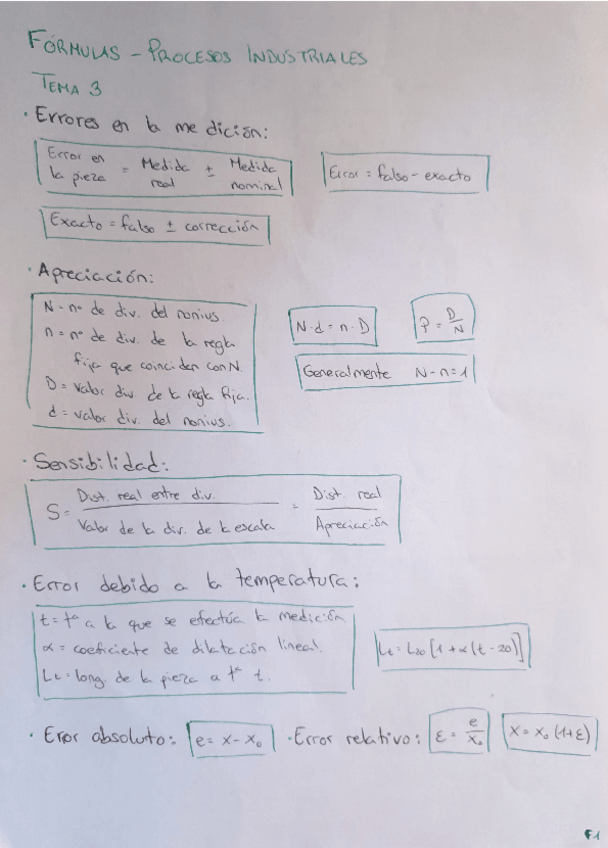 FÓRMULAS - PROCESOS INDUSTRIALES
TEMA 3
· Errores en la medición:
Error en la pieza = Medida real ± Medida nominal
Error = falso - exacto
Exacto = falso ± corrección
· Apreciación:
N - nº de div. del nonius.
n = nº de div. de la regla
fija que coinciden con N.
D = Valor div. de la regla fija.
d = valor div. del nonius.
N·d = n·D
P = D/N
Generalmente N - n = 1
· Sensibilidad:
S = Dist. real entre div. / Valor de la div. de la escala = Dist. real / Apreciación
· Error debido a la temperatura:
t = tª a la que se efectúa la medición
α = coeficiente de dilatación lineal.
Lt = long. de la pieza a tª t.
Lt = L20 [1 + α (t - 20)]
· Error absoluto: e = x - x₀ · Error relativo: ε = e/x₀ X = x₀ (1+ε)
F1